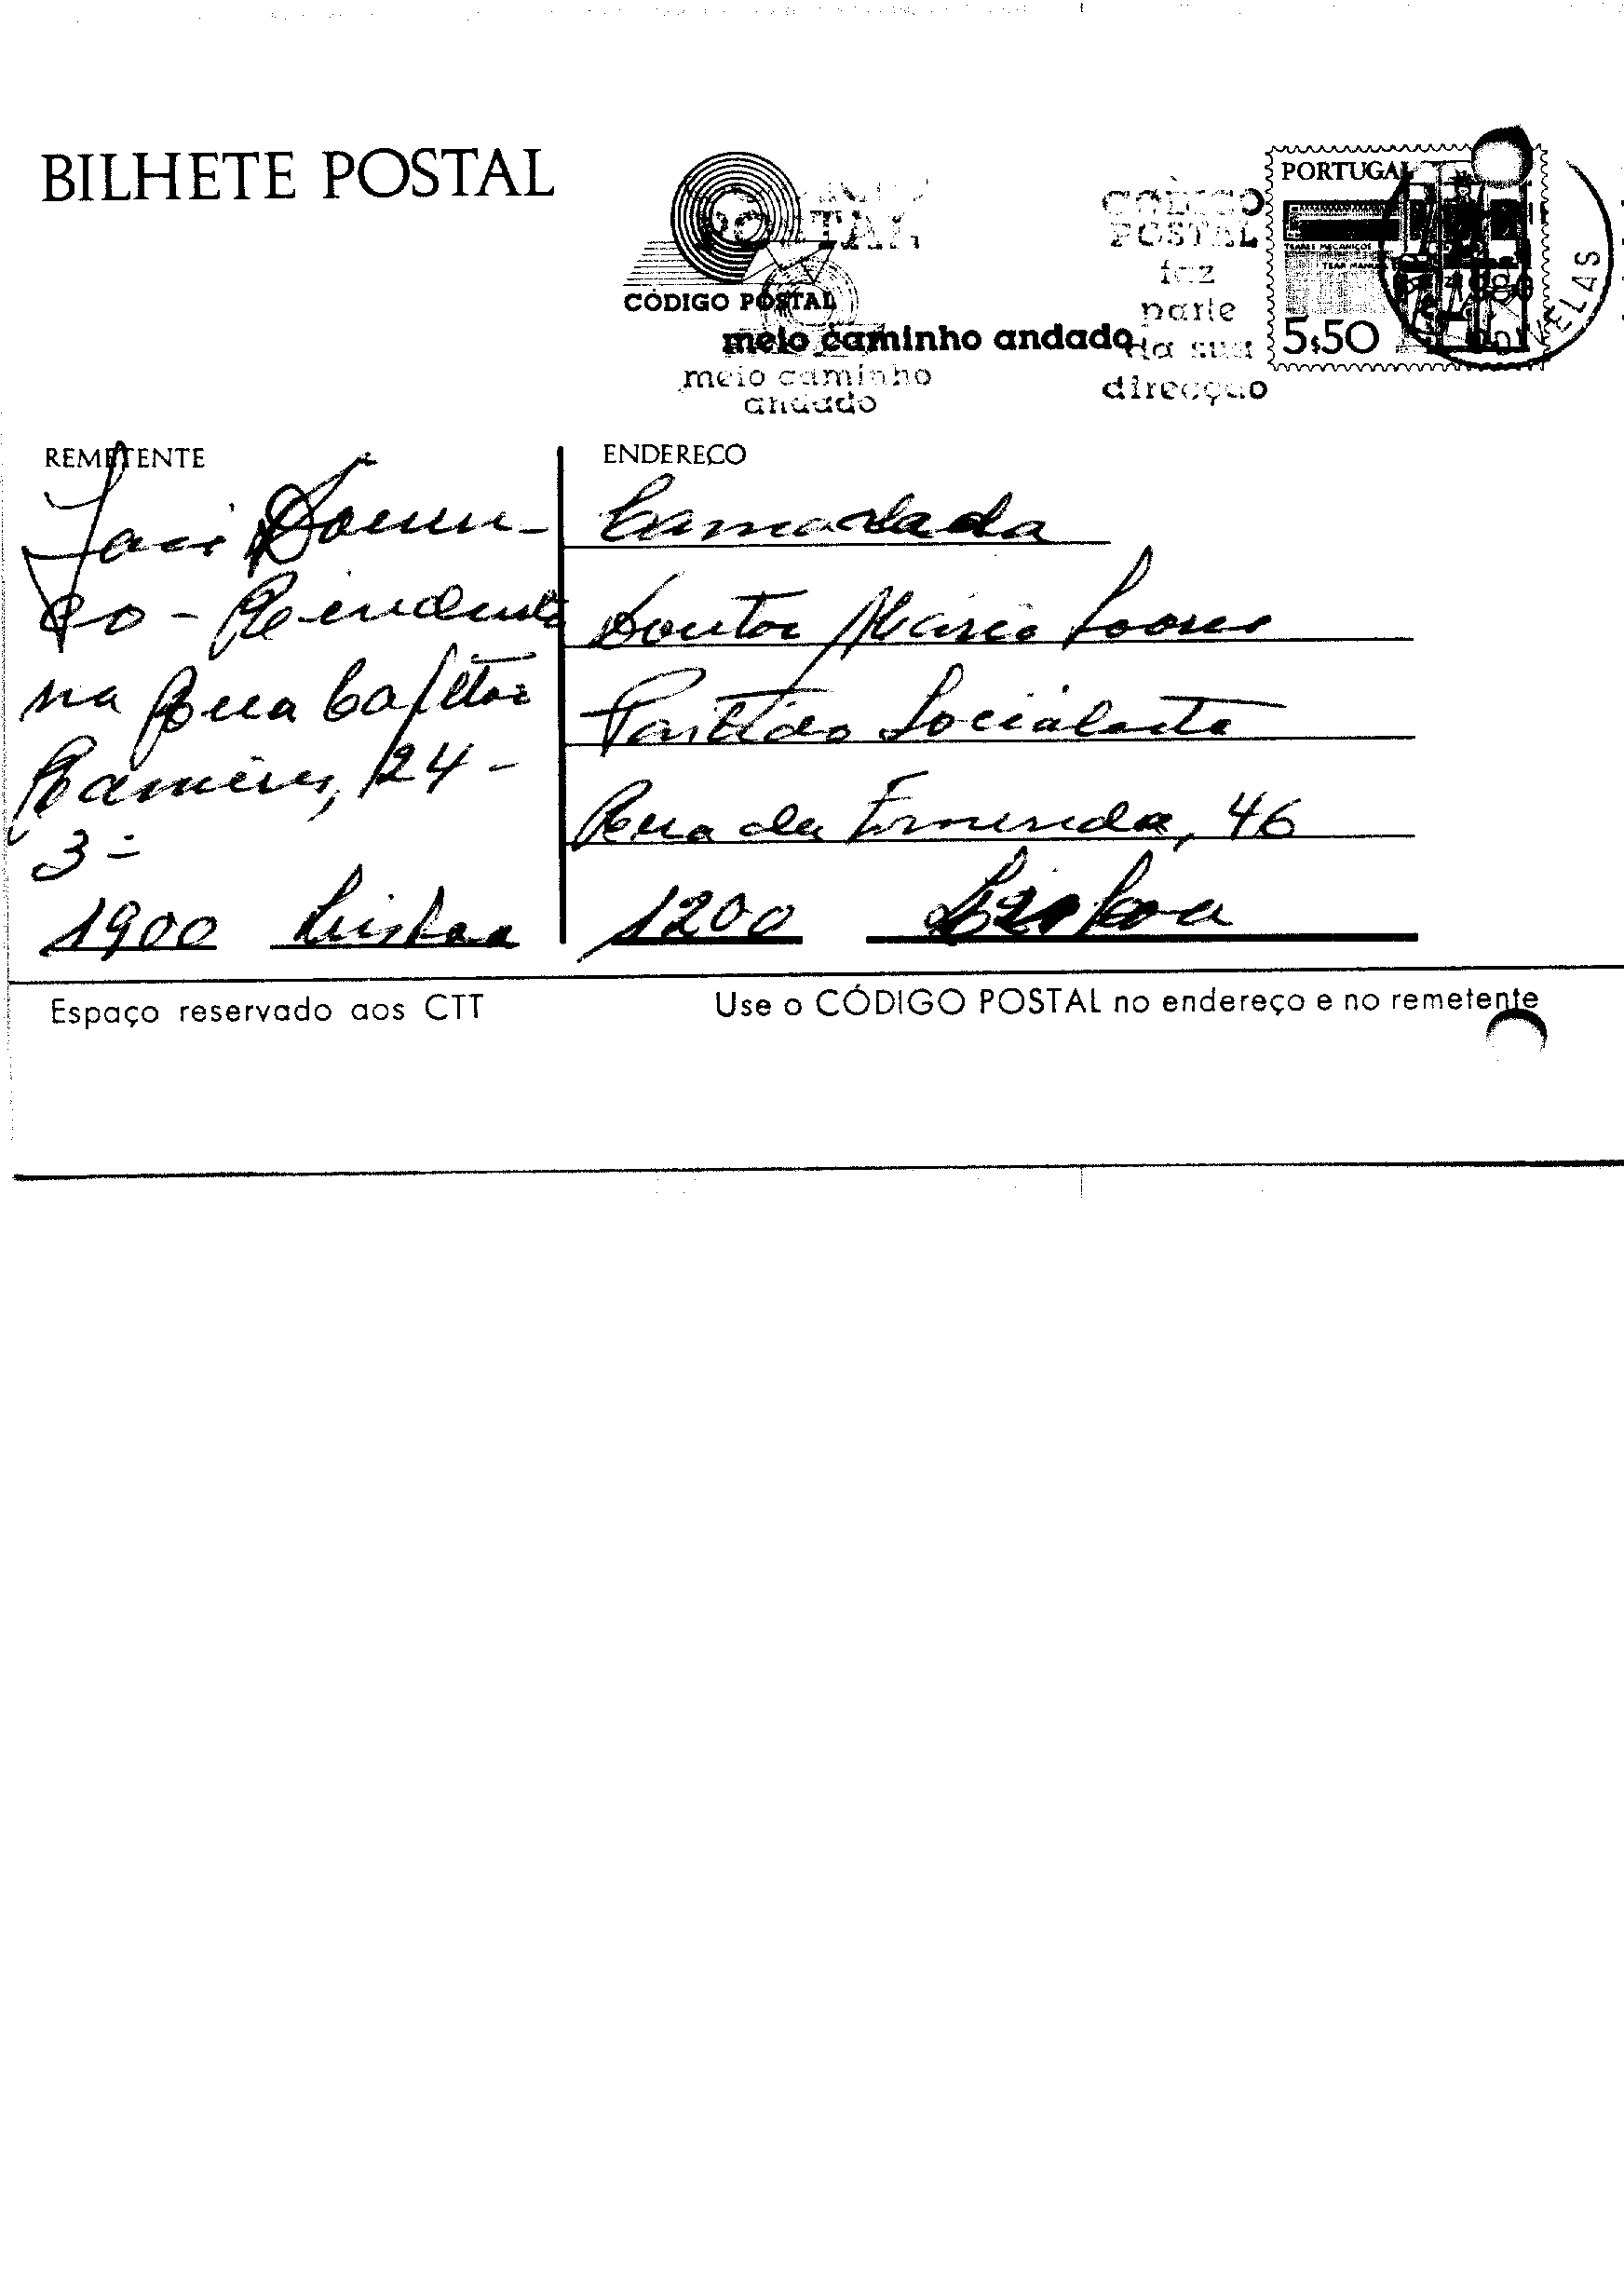 BILHETE POSTAL
CÓDIGO POSTAL
meio caminho andado
meio caminho
andado
CÓDIGO
POSTAL
faz
parte
da sua
direcção
PORTUGAL
TEARES MECANICOS
TEAR MANUAL
5$50
REMETENTE
na Rua Capitão
Ramires, 24 -
3º
1900 Lisboa
ENDEREÇO
Camarada
Doutor Mário Soares
Partido Socialista
Rua da Emenda, 46
1200 Lisboa
Espaço reservado aos CTT
Use o CÓDIGO POSTAL no endereço e no remetente